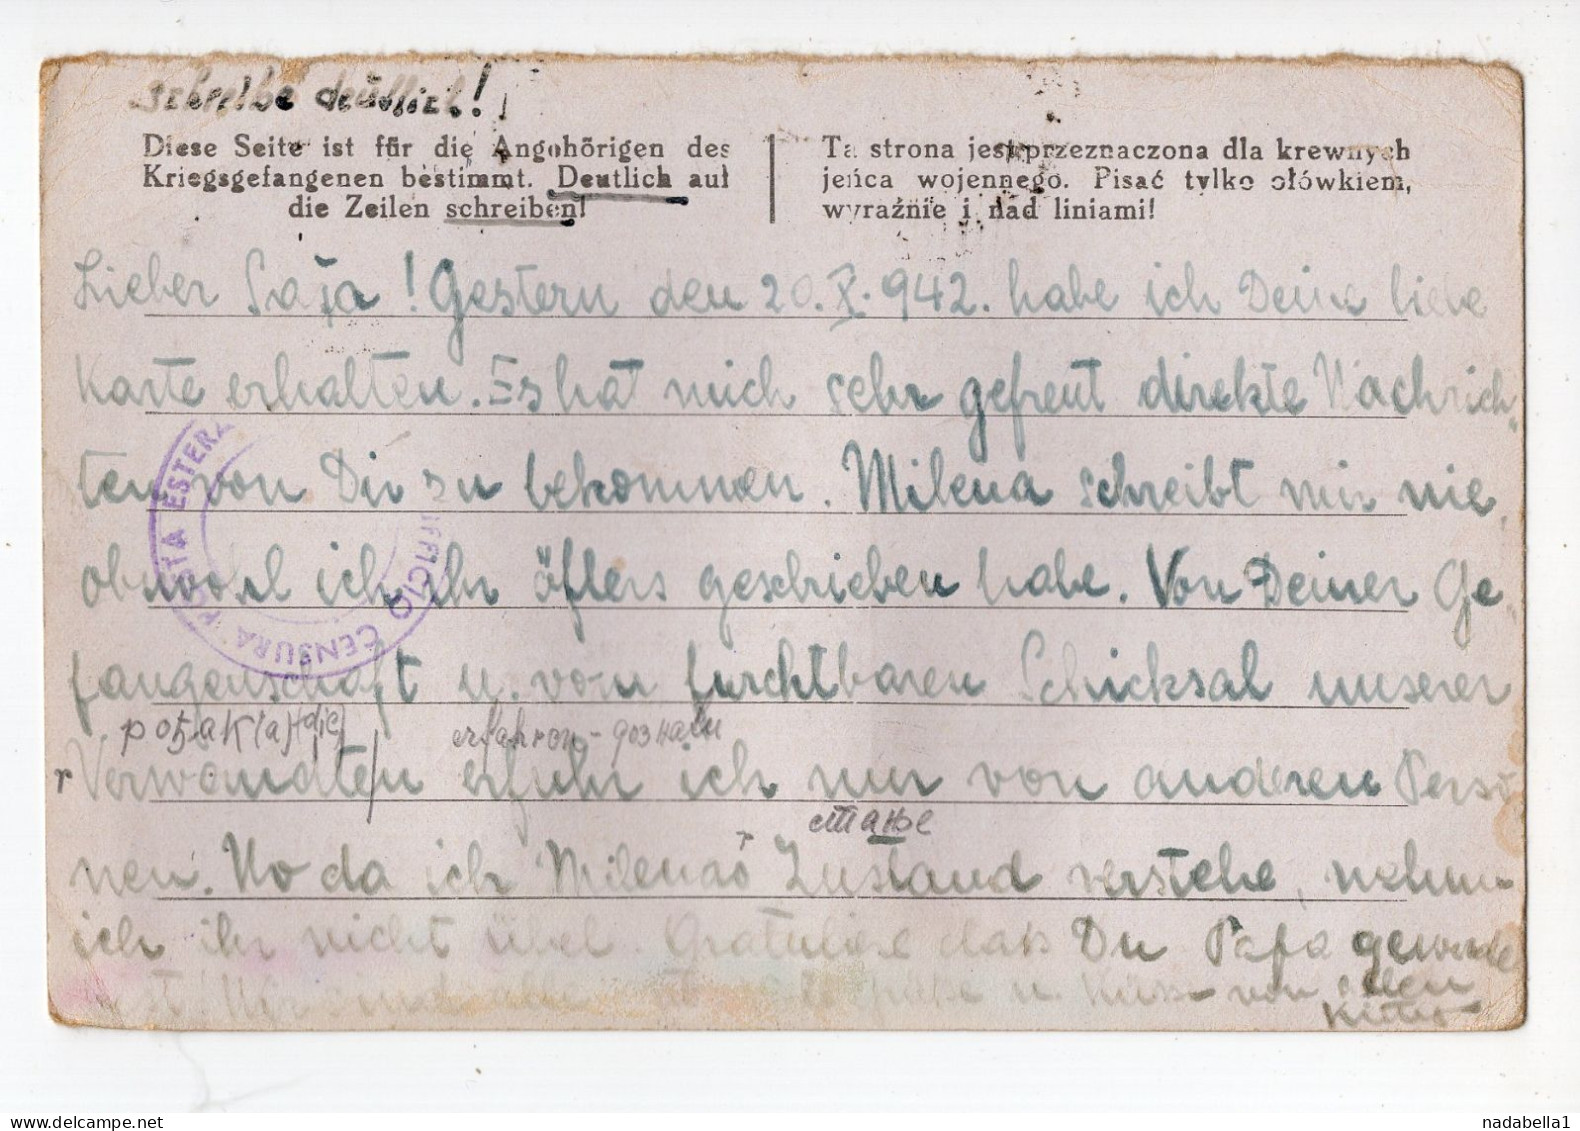 schreibe deutlich!
Diese Seite ist für die Angehörigen des
Kriegsgefangenen bestimmt. Deutlich auf
die Zeilen schreiben!
Ta strona jest przeznaczona dla krewnych
jeńca wojennego. Pisać tylko ołówkiem,
wyraźnie i nad liniami!
Lieber Saša! Gestern den 20. X. 942. habe ich Deine liebe
Karte erhalten. Es hat mich sehr gefreut direkte Nachrich"
ten von Dir zu bekommen. Milena schreibt mir nie,
obwohl ich ihr öfters geschrieben habe. Von Deiner Ge"
fangenschaft u. vom furchtbaren Schicksal unserer
erfahren - дознати
Verwandten erfuhr ich nur von anderen Perso
стање
nen. No da ich Milenas Zustand verstehe, nehme
ich ihr nicht übel. Gratuliere dass Du Papa geworden
u. Küsse von allen
POSTA ESTERA
UFFICIO CENSURA
nadabella1